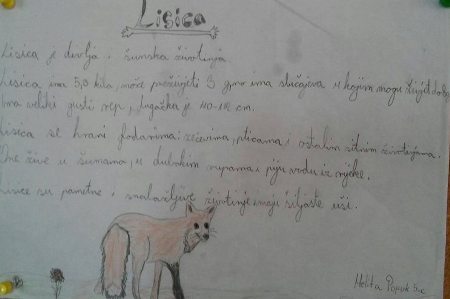 Lisica
Lisica je divlja i šumska životinja.
Lisica ima 5,3 kila, može preživjeti 3 ima slučajeva u kojim mogu živjet do
Ima veliki gusti rep, dugačka je cm.
Lisica se hrani glodavima: zečevima, pticama i ostalim sitnim životinjama.
One žive u šumama, u dubokim rupama i piju vodu iz rijeke.
Lisice su pametne i snalažljive životinje imaju šiljaste uši.
Melita